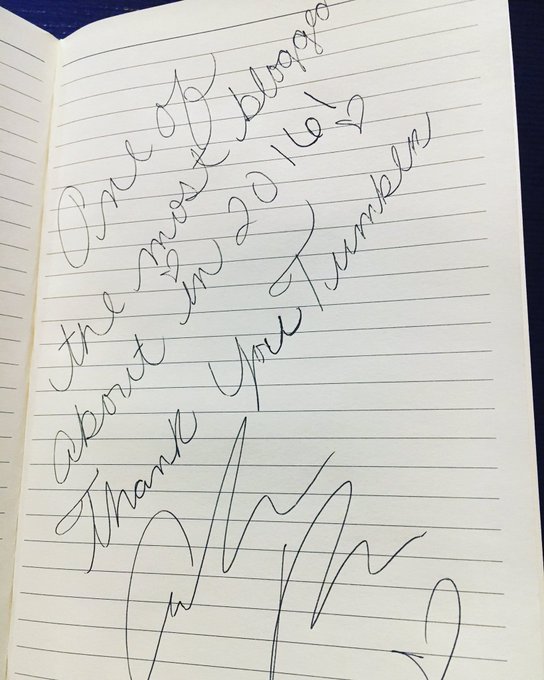 One of
the most blogged
about in 2016!
Thank You Tumbler